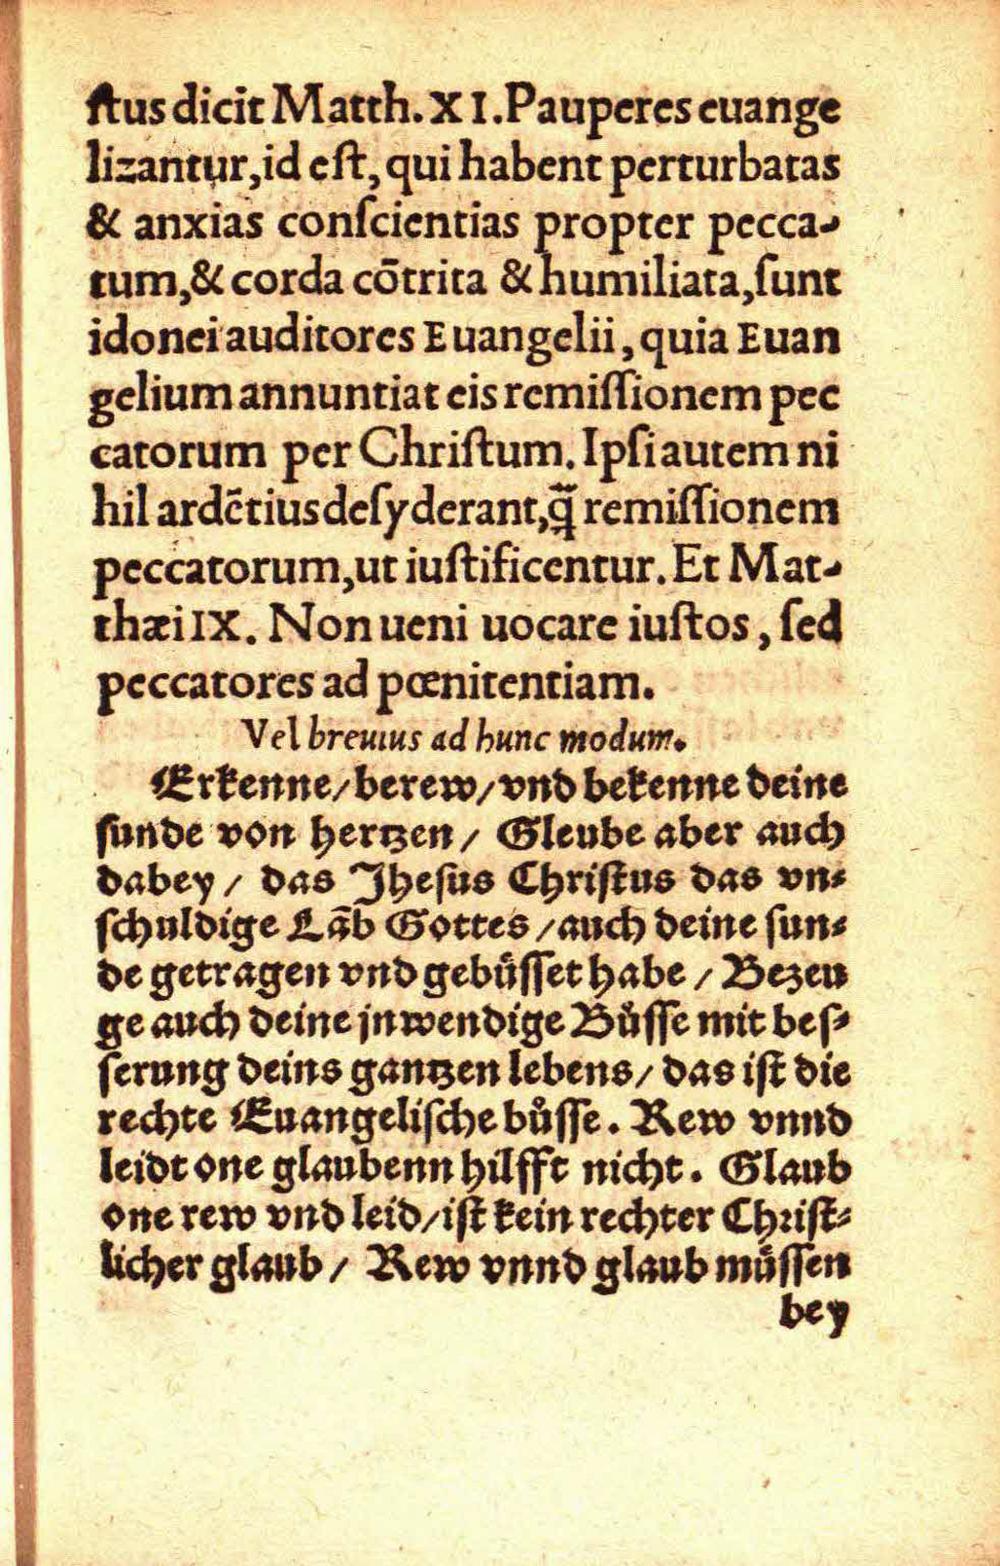 ſtus dicit Matth. XI. Pauperes euange
lizantur, id eſt, qui habent perturbatas
& anxias conſcientias propter pecca-
tum, & corda cōtrita & humiliata, ſunt
idonei auditores Euangelii, quia Euan
gelium annuntiat eis remiſſionem pec
catorum per Chriſtum. Ipſi autem ni
hil ardētius deſyderant, q̃ remiſſionem
peccatorum, ut iuſtificentur. Et Mat-
thæi IX. Non ueni uocare iuſtos, ſed
peccatores ad pœnitentiam.
Vel breuius ad hunc modum.
Erkenne/ berew/ vnd bekenne deine
ſunde von hertzen/ Gleube aber auch
dabey/ das Jheſus Chriſtus das vn⸗
ſchuldige Lāb Gottes/ auch deine ſun⸗
de getragen vnd gebuͤſſet habe/ Bezeu
ge auch deine jnwendige Buͦſſe mit beſ⸗
ſerung deins gantzen lebens/ das iſt die
rechte Euangeliſche buͦſſe. Rew vnnd
leidt one glaubenn hilfft nicht. Glaub
one rew vnd leid/ iſt kein rechter Chriſt⸗
licher glaub/ Rew vnnd glaub muͤſſen
bey